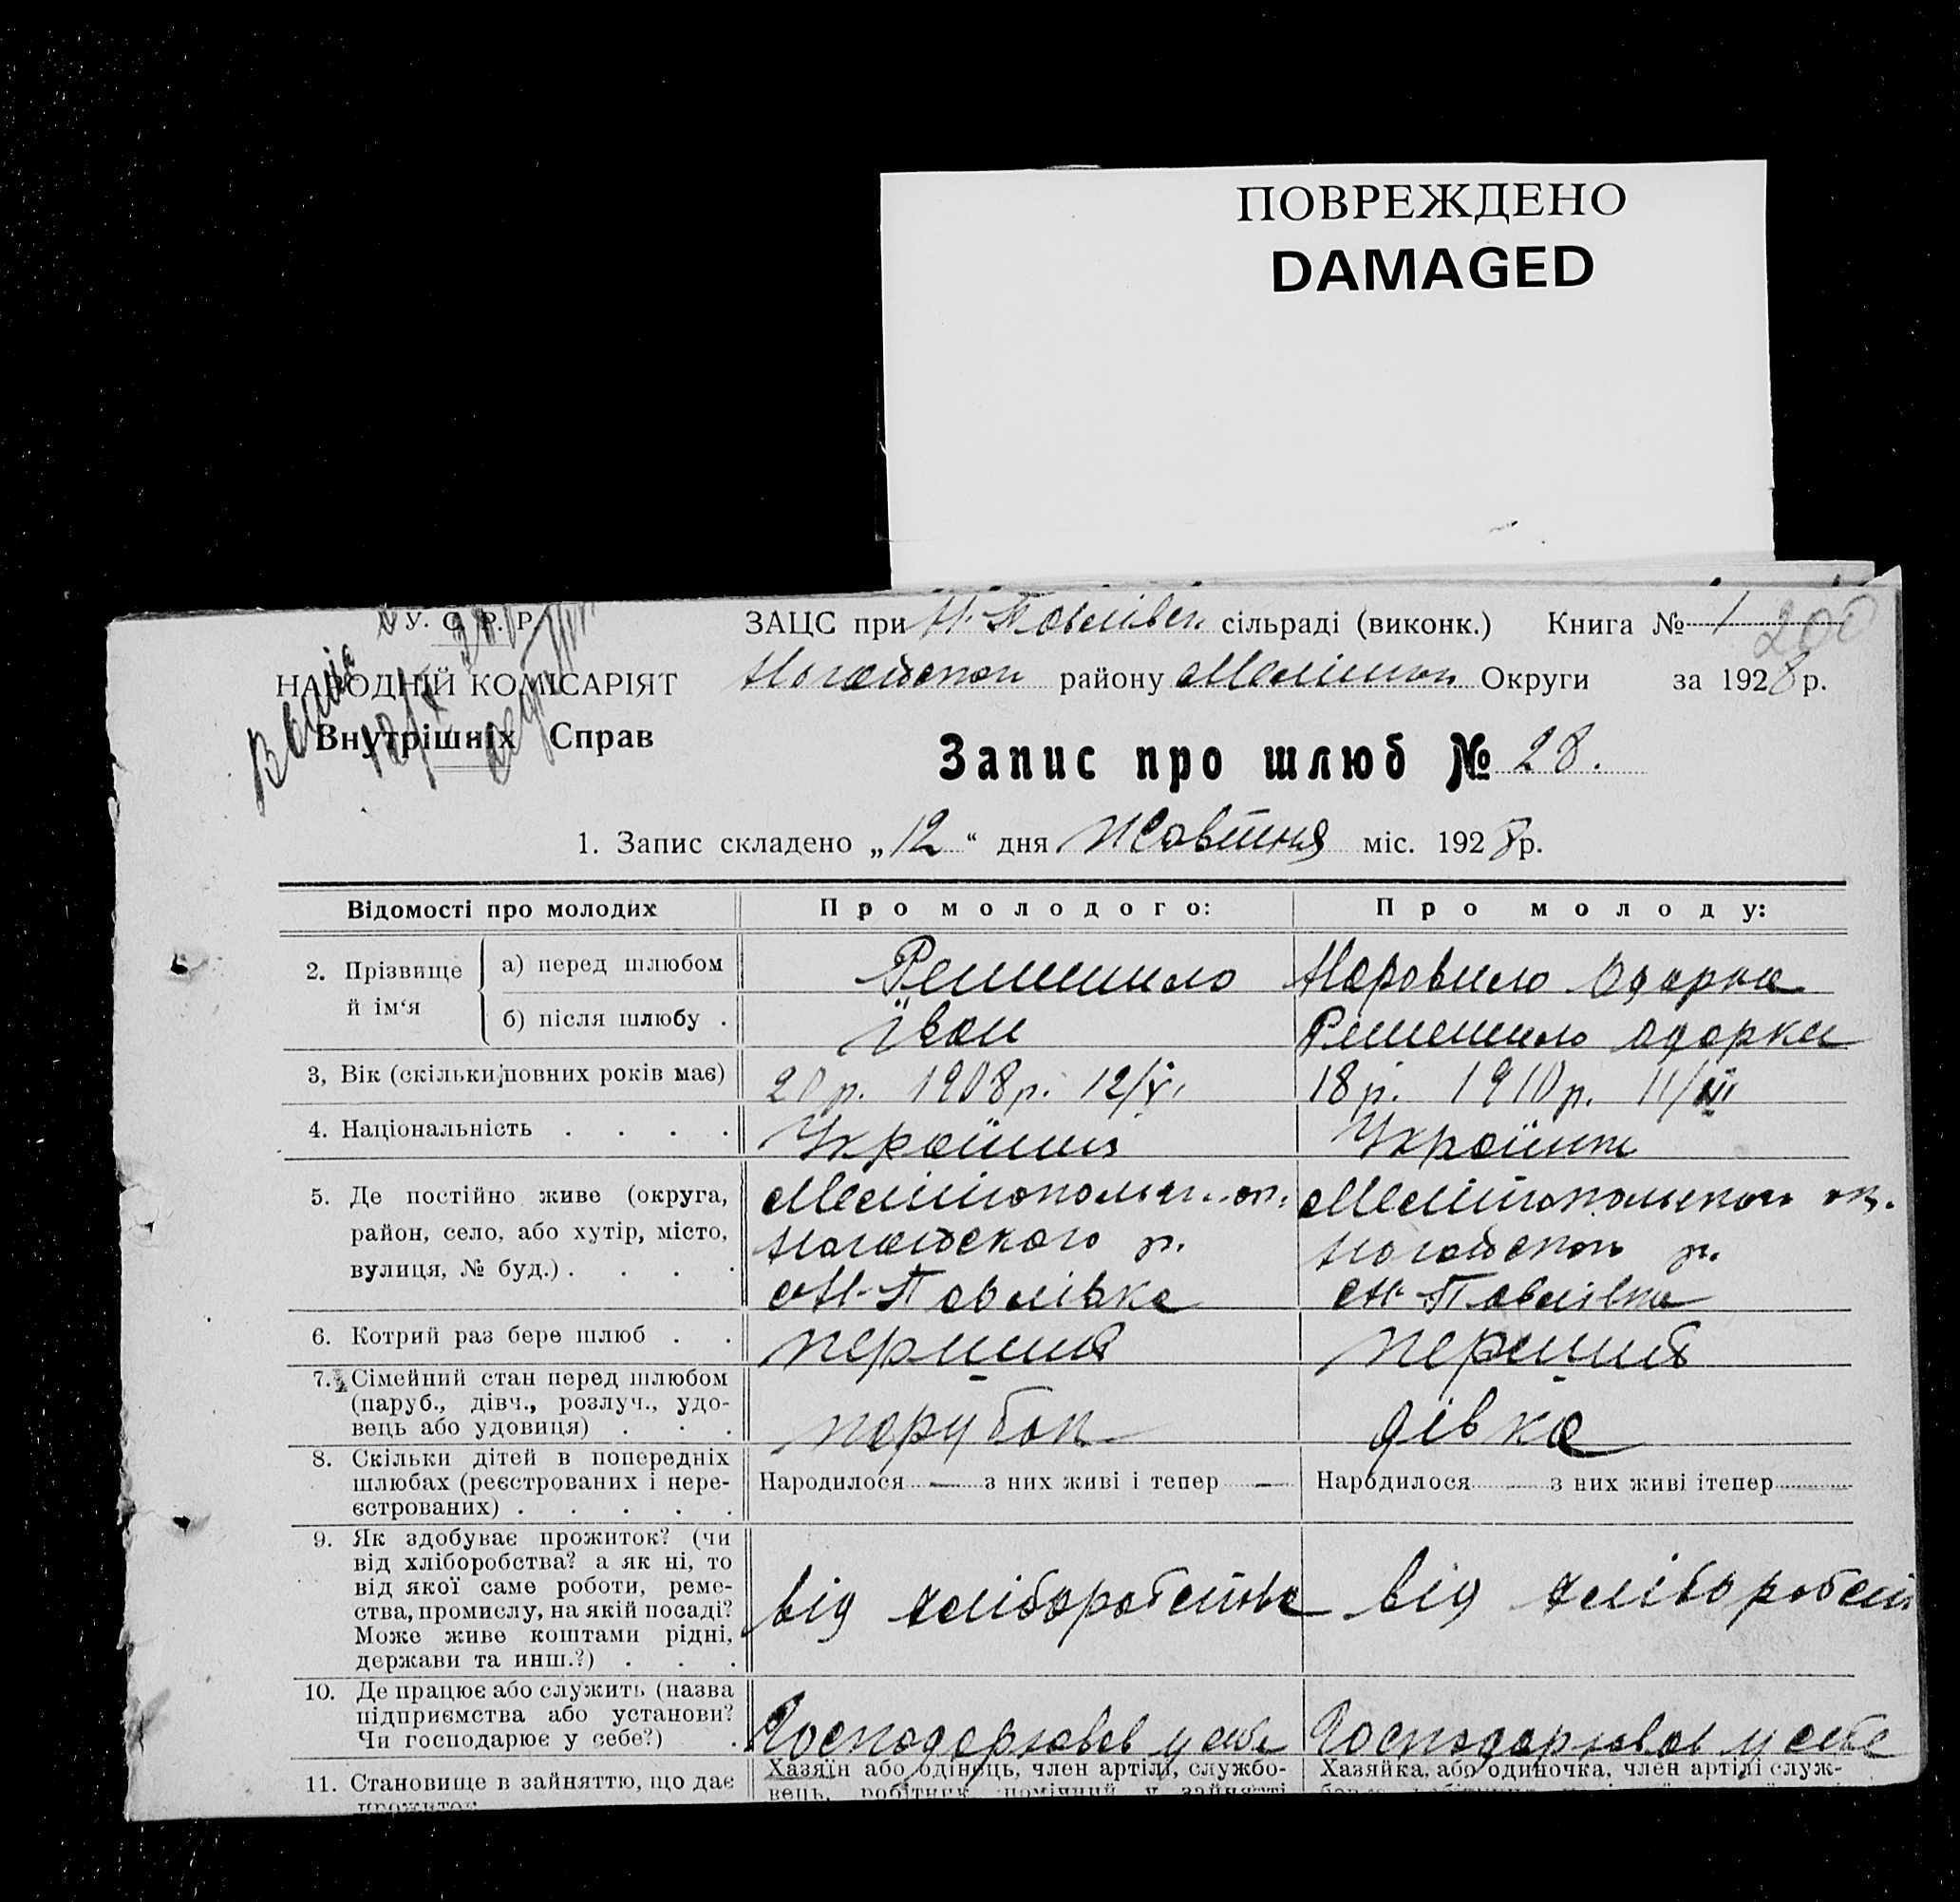 ПОВРЕЖДЕНО
DAMAGED
У. С. Р. Р.
НАРОДНІЙ КОМІСАРІЯТ
Внутрішніх Справ
ЗАЦС при Н-Павлівск. сільраді (виконк.) Книга № 1 200
Ногайськ. району Меліттоп. Округи за 1928 р.
Запис про шлюб № 28.
1. Запис складено „12“ дня Жовтня міс. 1928 р.
Відомості про молодих Про молодого: Про молоду:
2. Прізвище й ім‘я
а) перед шлюбом Одарка
б) після шлюбу . Іван Одарка
3, Вік (скільки повних років має) 20 р. 1908 р. 12/V. 18 р. 1910 р. 11/
4. Національність . . . . Українець Українка
5. Де постійно живе (округа,
район, село, або хутір, місто,
вулиця, № буд.) . . . .
Мелітопольськ. ок.
Ногайського р.
с Н-Павлівка
Мелітопольськ. ок.
Ногайськ. р.
с Н-Павлівка
6. Котрий раз бере шлюб . . перший перший
7. Сімейний стан перед шлюбом
(паруб., дівч., розлуч., удо-
вець або удовиця) . . .
парубок дівка
8. Скільки дітей в попередніх
шлюбах (реєстрованих і нере-
єстрованих) . . . . .
Народилося — з них живі і тепер — Народилося — з них живі ітепер
9. Як здобуває прожиток? (чи
від хліборобства? а як ні, то
від якої саме роботи, реме-
ства, промислу, на якій посаді?
Може живе коштами рідні,
держави та инш.?) . . .
від хліборобства від хліборобст
10. Де працює або служить (назва
підприємства або установи?
Чи господарює у себе?) .
Господарював у себе Господарював у себе
11. Становище в зайняттю, що дає
прожиток
Хазяїн або одінець, член артілі, службо-
вець, робітник, помічний у зайнятті
Хазяйка, або одиночка, член артілі служ-